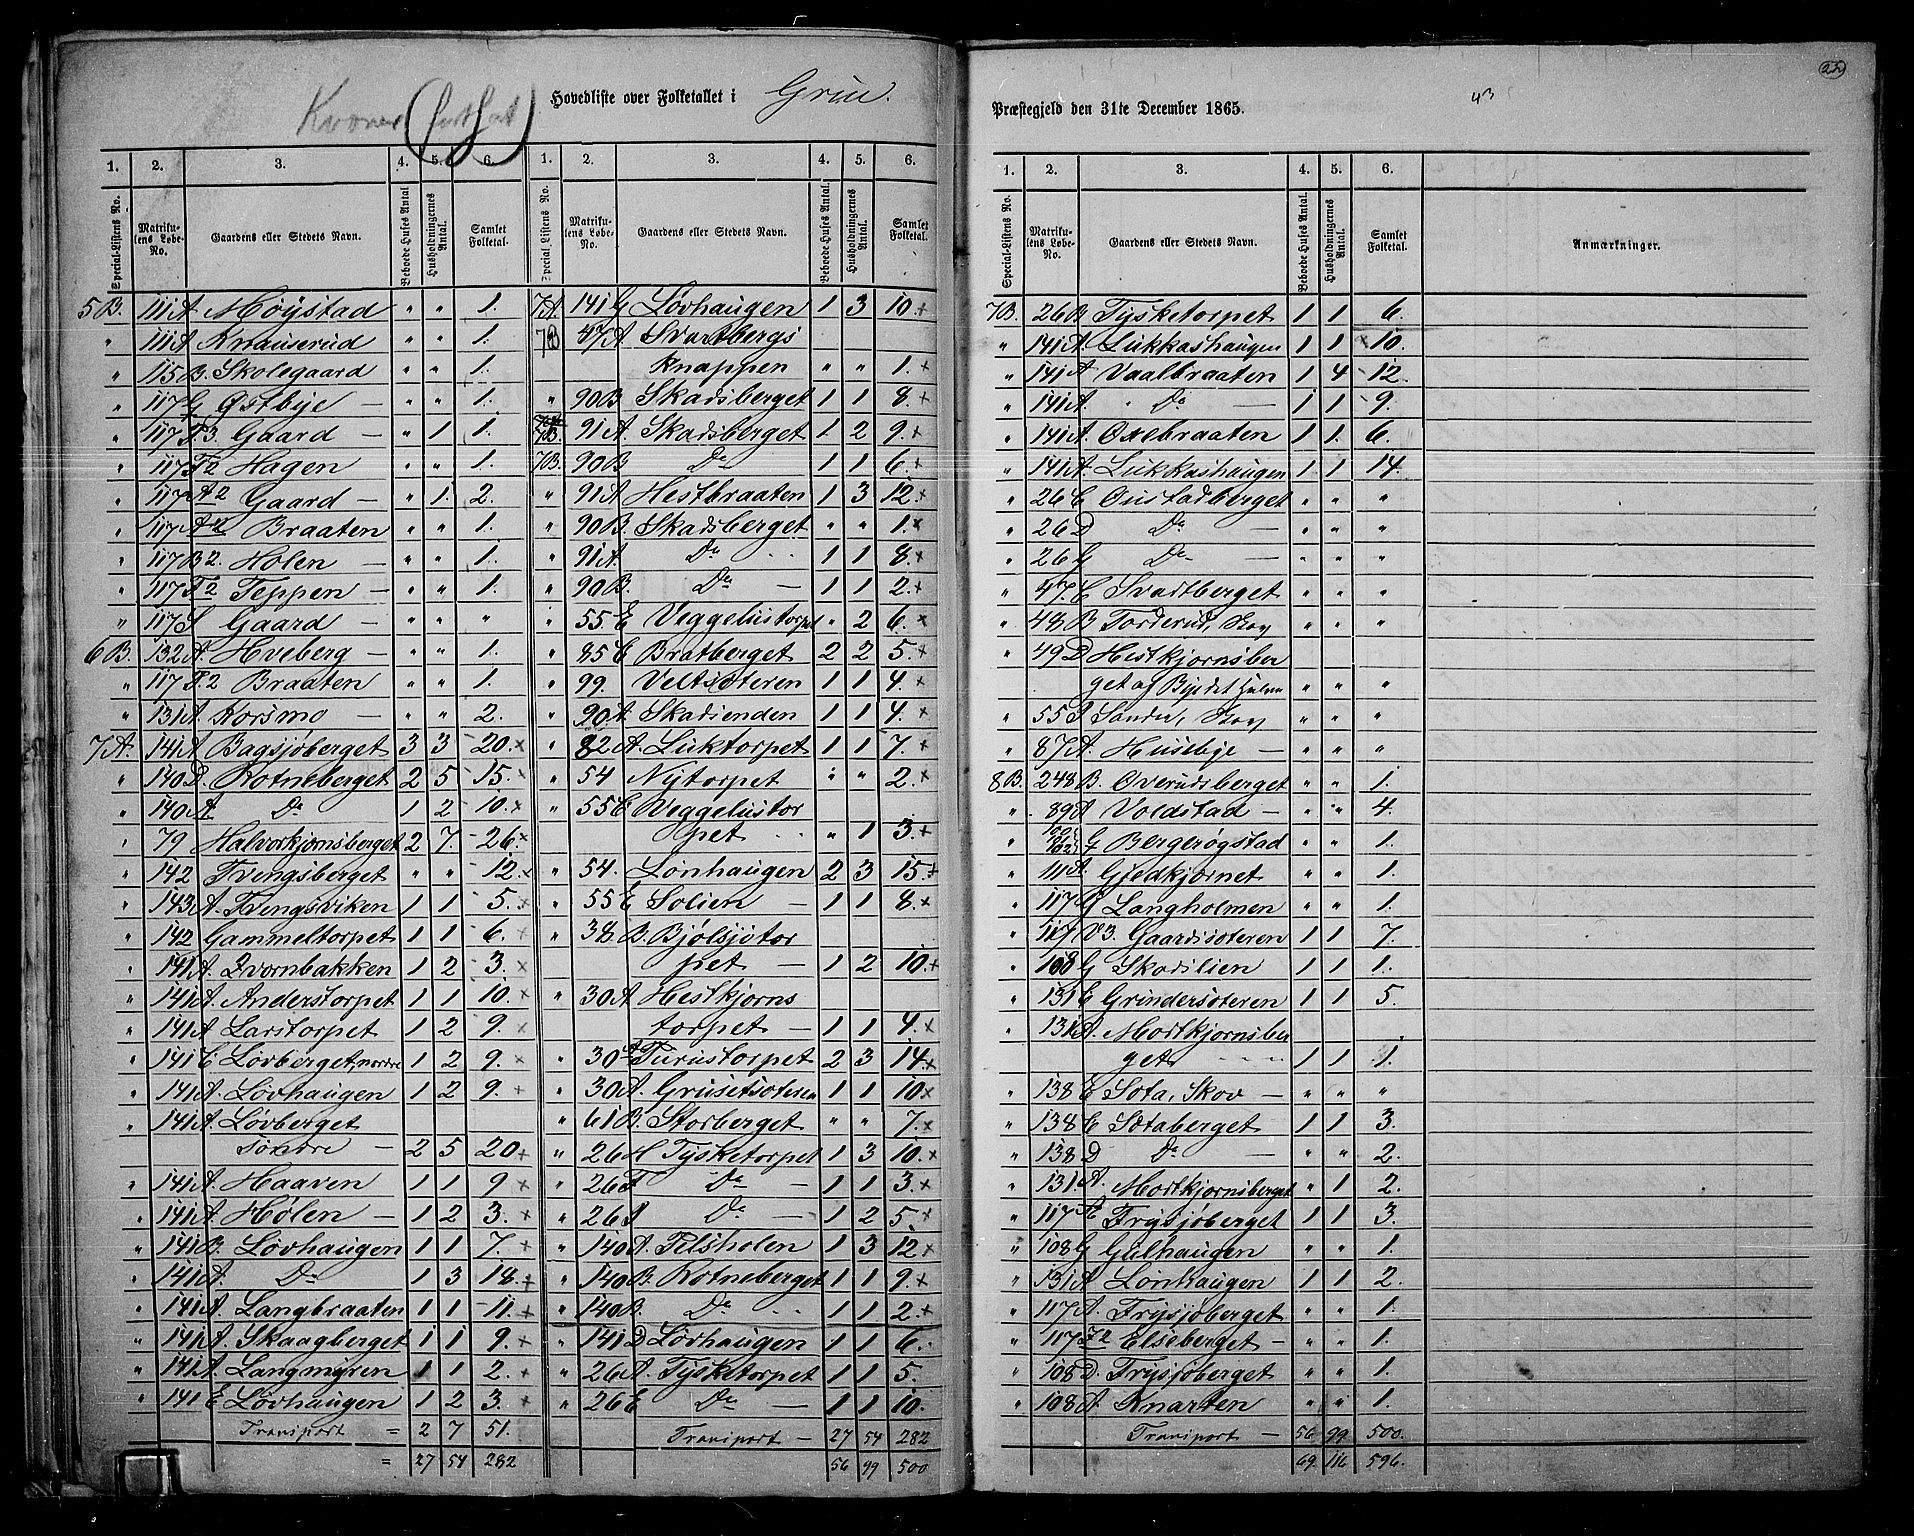 25
43
Hovedliste over Folketallet i Grue.
Præstegjeld den 31te December 1865.
1. 2. 3. 4. 5. 6.
Special-Listens No. Matrikulens Løbe-No. Gaardens eller Stedets Navn. Beboede Huses Antal Husholdningernes Antal. Samlet Folketal.
5B. 111 A Møystad " " 1.
" 111 A Knauserud " " 1.
" 115 B. Skolegaard " " 1.
" 117 G Østbye — " " 1.
" 117 F3 Gaard — " 1 1.
" 117 F2 Hagen " " 1.
" 117 A2 Gaard — " 1. 2.
" 117 A2 Braaten " " 1.
" 117 B2. Holen — " " 1.
" 117 F2 Teppen — " " 1.
" 117 S Gaard — " " "
6B. 132 A. Hveberg — " " 1.
" 117 F.2 Braaten " " 1.
" 131 A. Korsmo — " " 2.
7A. 141 A Bagsjøberget 3 3 20. x
" 140 D. Rotneberget 2 5 15. x
" 140 A Do 1 2 10. x
" 79 Halvorkjernsberget 2 7. 26 x
" 142 Tvengsberget " " 12. x
" 143 A. Tvengsviken 1 1 5. x
" 142 Gammeltorpet 1 1 6. x
" 141 A. Qvernbakken 1 2 3. x
" 141 A. Anderstorpet 1 1 10. x
" 141 A Larstorpet 1 2 9. x
" 141 C Løvberget, nordre 1 2 9. x
" 141 A. Løvhaugen 1 2 9. x
" 141 A. Løvberget
søndre — 2 5 20 x
" 141 A. Haaven 1 1 9 x
" 141 A. Hølen — 1 2 3. x
" 141 B. Løvhaugen 1 1 7. x
" 141 A. Do — 1 3 18. x
" 141 A. Langbraaten 1 1 11. x
" 141 A. Skaagberget 1 1 9. x
" 141 A. Langmyren 1 1 2. x
" 141 E Løvhaugen 1 2 3. x
Transport = 2 7 51.
= 27 54 282
1. 2. 3. 4. 5. 6.
Special-Listens No. Matrikulens Løbe-No. Gaardens eller Stedets Navn. Beboede Huses Antal. Husholdningernes Antal. Samlet Folketal.
7A. 141 G Løvhaugen 1 3 10. x
7B 47 A Svartbergs
knappen " " 1. x
" 90 B Skadsberget 1 1 8. x
7B. 91 A. Skadsberget 1. 2 9. x
7B. 90 B Do 1 1 6. x
" 91 A. Hestbraaten 1 3 12. x
" 90 B. Skadsberget " " 1. x
" 91 A. Do 1 1 8. x
" 90 B. Do — 1 1 2. x
" 55 E Veggelustorpet " 2 6. x
" 85 C Bratberget 2 2 5. x
" 99. Veltsæteren 1 1 4. x
" 90 A. Skadienden 1 1 4. x
" 82 A. Luktorpet 1 1 7. x
" 54 Nytorpet " " 2. x
" 55 E Veggelustor
pet " 1 3. x
" 54. Lønhaugen 2 3 15. x
" 55 E Solien — 1 1 8. x
" 38. B. Bjølsjøtor
pet — 1 2 10. x
" 30 A. Hestkjerns
torpet — 1 1 4. x
" 30 A Purustorpet 2 3 14 x
" 30 A. Grusetsæteren 1 1 10 x
" 61 B. Storberget " " 7. x
" 26 H Tysketorpet 1 3 10. x
" 26 F Do — 1 1 3. x
" 26 I Do — 1 2 5. x
" 140 A. Pelsholen 1 3 12 x
" 140 B. Rotneberget 1 1 9. x
" 140 B. Do 1 1 2. x
" 141 D Løvhaugen 1 1 6.
" 26 A. Tysketorpet 1 1 5.
" 26 E Do — 1 1 10.
Transport — 27 54 282
56 99 500
1. 2. 3. 4. 5. 6.
Special-Listens No. Matrikulens Løbe-No. Gaardens eller Stedets Navn. Beboede Huses Antal. Husholdningernes Antal. Samlet Folketal. Anmærkninger.
7B. 26 B Tysketorpet 1 1 6.
" 141 A. Lukkashaugen 1 1 x 10.
" 141 A Vaalbraaten 1 4 12.
" 141 A. " Do — 1 1 9.
" 141 A. Oxebraaten 1 1. 6.
" 141 A. Lukkashaugen 1. 1 14.
" 26 C Oustadberget " " "
" 26 D Do — " " "
" 26 G Do — " " "
" 47. C Svartberget " " "
" 48 B Torderud, Skov " " "
" 49 D Hestkjernsber
" 55 Sander, Skov " " "
" 87 A. Husebye — " " "
8B. 248 B. Overudsberget " " 1.
" 89 A Voldstad — " " 4.
G Bergerøgstad " " 1.
" 111 A. Gjedkjernet " " 1.
" 117 G Langholmen " " 1.
" 117 V3. Gaardsæteren 1 1 7.
" 108 G Skasilien 1 1 1.
" 131 E Grindersæteren 1 1 5.
" 131 A. Mortkjernsber
get 1 1 1.
" 138 E Sæta, Skov — " " "
" 138 C Sætaberget 1 1 3.
" 138 D Do — " " 2.
" 131. A. Mortkjernsberget " 1 2.
" 117 Frysjøberget 1 1 3.
" 108 G Gulhaugen " " 1.
" 131 A Lønhaugen 1 1 2.
" 117 A. Frysjøberget " " 1.
" 117 F2 Elseberget — " " 1.
" 108 D. Frysjøberget " " 1.
" 108 A Knarten " " 1.
Transport — 56 99 500.
69. 116 596.